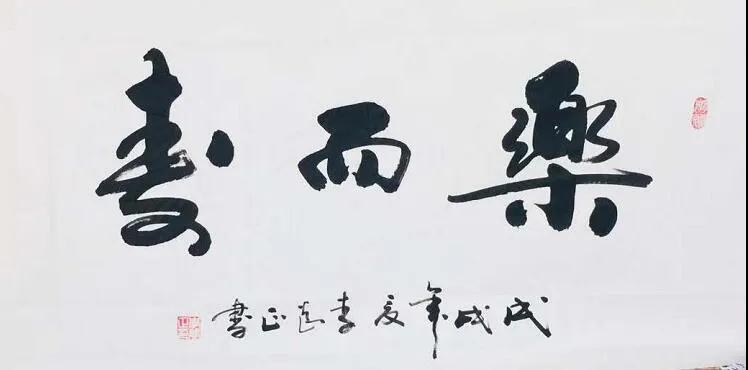 樂而壽
戊戌年夏李正書